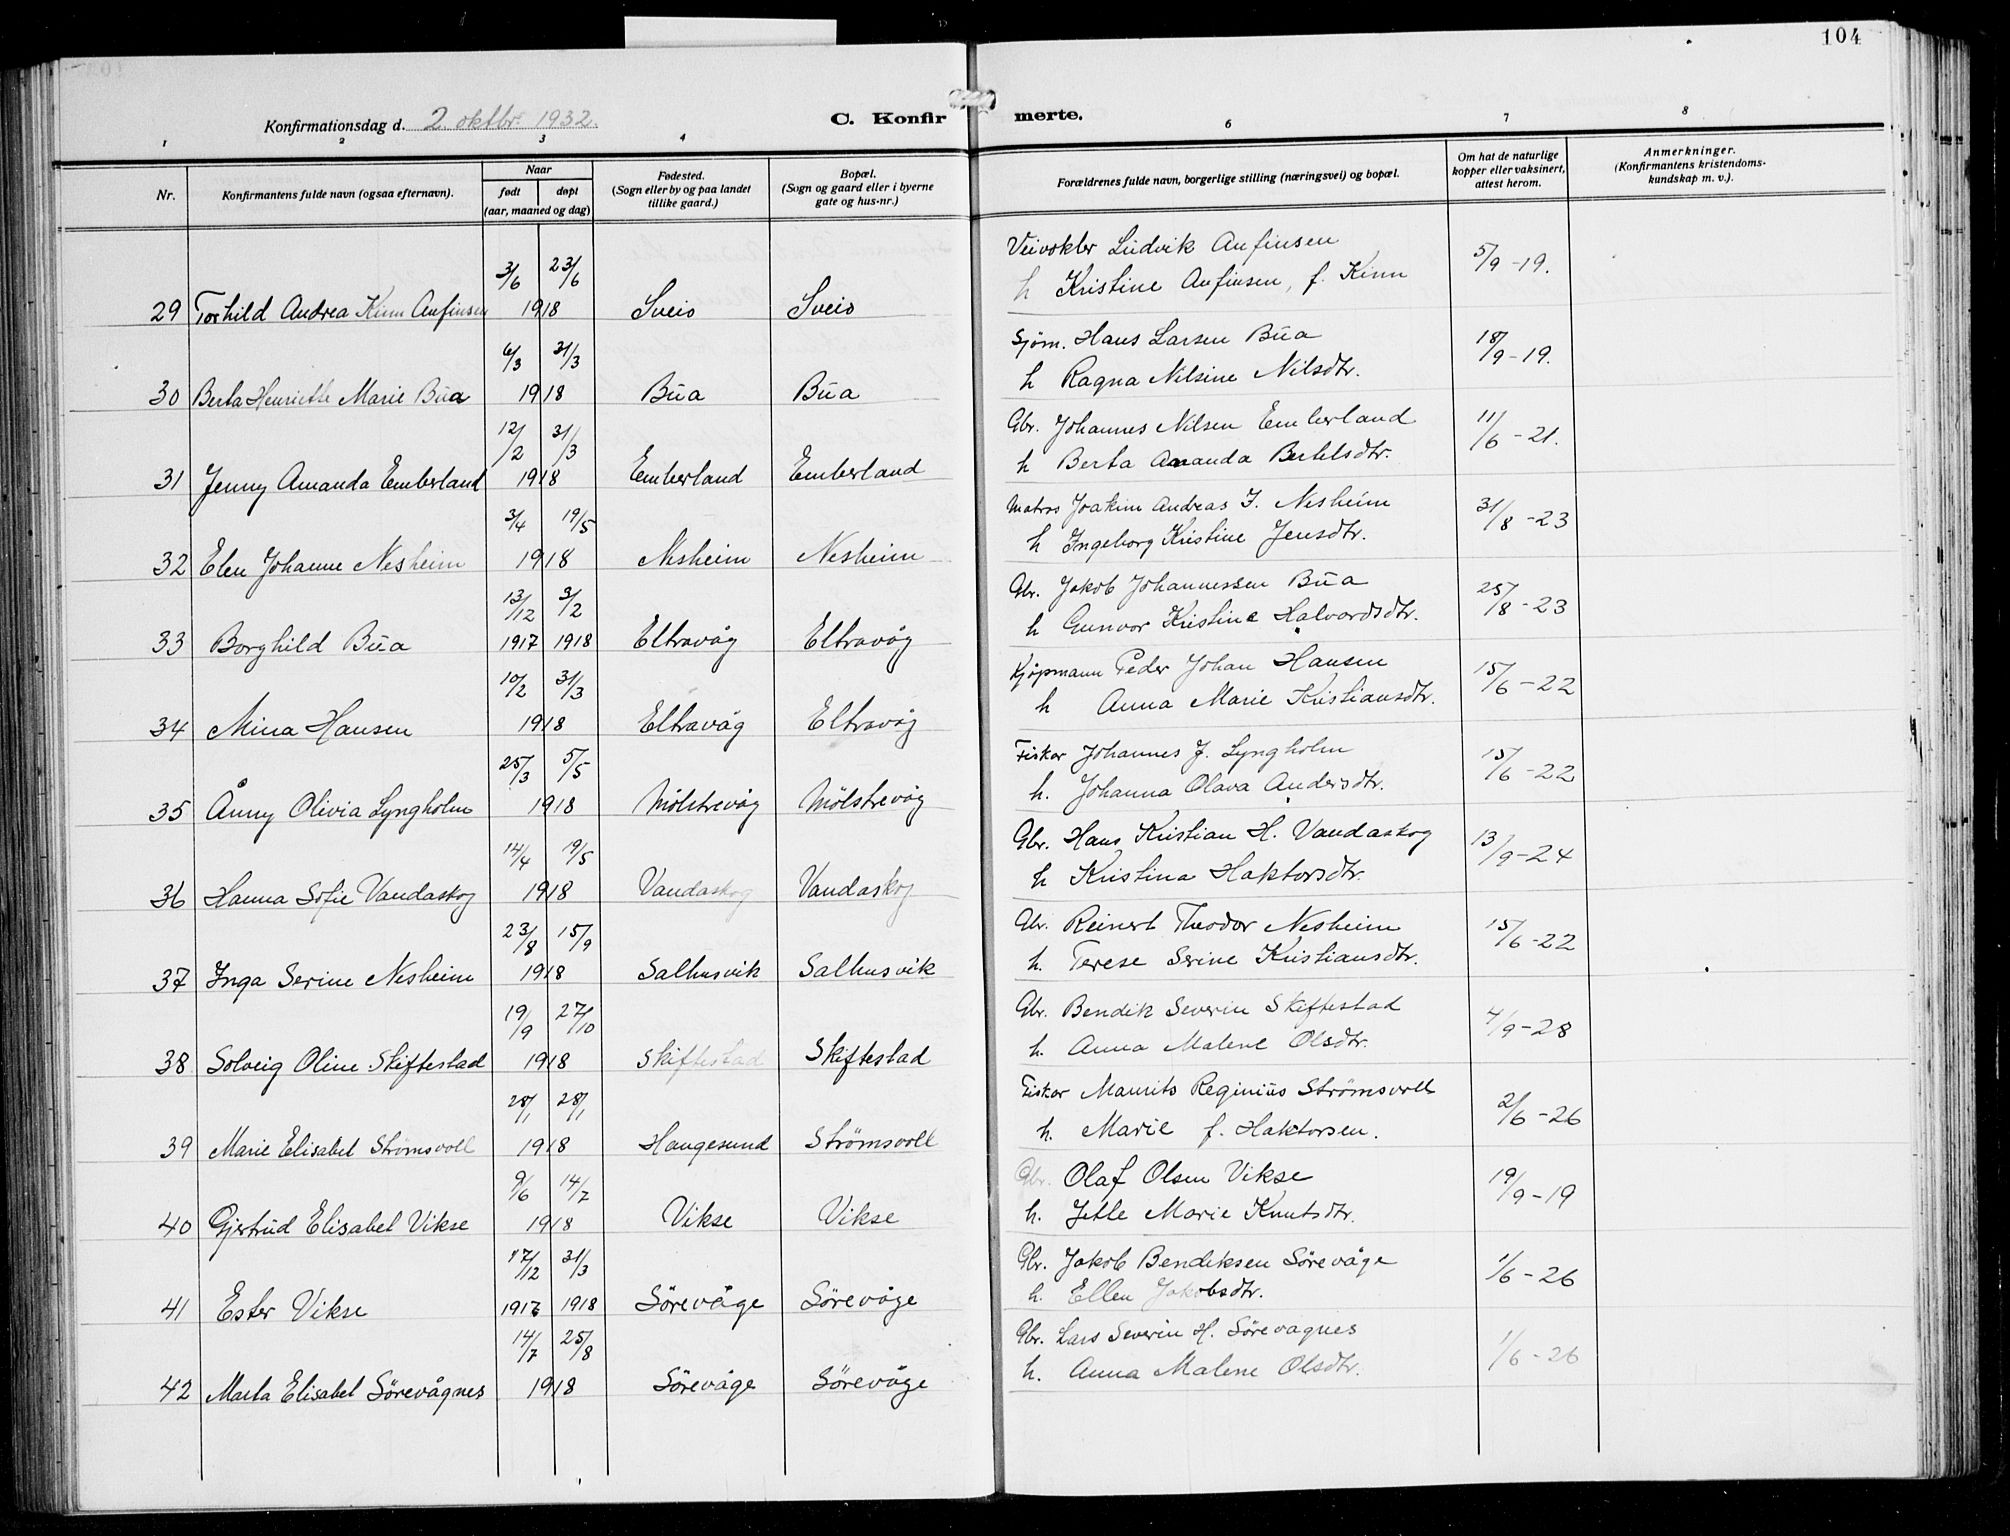 104
Konfirmationsdag d. 2. oktbr. 1932.
C. Konfirmerte.
1 2 3 4 6 7 8
Nr.
Konfirmantens fulde navn (ogsaa efternavn).
Naar
født døpt
(aar, maaned og dag)
Fødested.
(Sogn eller by og paa landet
tillike gaard.)
Bopæl.
(Sogn og gaard eller i byerne
gate og hus-nr.)
Forældrenes fulde navn, borgerlige stilling (næringsvei) og bopæl.
Om hat de naturlige
kopper eller vaksinert,
attest herom.
Anmerkninger.
(Konfirmantens kristendoms-
kundskap m. v.).
3/6 23/6 Veivokter Ludvik Anfinsen 5/9-19.
h Kristine Anfinsen, f. Kinn
29 Torhild Andrea Kinn Anfinsen 1918 Sveio Sveio
6/3 31/3 Sjöm. Hans Larsen Bua 18/9-19.
h Ragna Nilsine Nilsdtr.
30 Berta Henriette Marie Bua 1918 Bua Bua
12/2 31/3 Gbr. Johannes Nilsen Emberland 11/6-21.
h Berta Amanda Bertelsdtr.
31 Jenny Amanda Emberland 1918 Emberland Emberland
3/4 19/5 Matros Joakim Andreas J. Nesheim 31/8-23
h Ingeborg Kristine Jensdtr.
32 Elen Johanne Nesheim 1918 Nesheim Nesheim
13/12 3/2 Gbr. Jakob Johannessen Bua 25/8-23
h Gunvor Kristine Halvardsdtr.
33 Borghild Bua 1917 1918 Eltravåg Eltravåg
10/2 31/3 Kjöpmann Peder Johan Hansen 15/6-22
h Anna Marie Kristiansdtr.
34 Mina Hansen 1918 Eltravåg Eltravåg
25/3 5/5 Fisker Johannes J. Lyngholm 15/6-22
h. Johanna Olava Andersdtr.
35 Ånny Olivia Lyngholm 1918 Mölstrevåg Mölstrevåg
14/4 19/5 Gbr. Hans Kristian H. Vandaskog 13/9-24
h Kristina Haktorsdtr.
36 Hanna Sofie Vandaskog 1918 Vandaskog Vandaskog
23/8 15/9 Gbr. Reinert Theodor Nesheim 15/6-22
h. Terese Serine Kristiansdtr.
37 Inga Serine Nesheim 1918 Salhusvik Salhusvik
19/9 27/10 Gbr. Bendik Severin Skiftestad 4/9-28
h. Anna Malene Olsdtr.
38 Solveig Oline Skiftestad 1918 Skiftestad Skiftestad
28/1 28/1 Fisker Maurits Reginius Strömsvoll 2/6-26
h. Marie f. Haktorsen.
39 Marie Elisabet Strömsvoll 1918 Haugesund Strömsvoll
9/6 14/7 Gbr. Olaf Olsen Vikse 19/9-19
h. Jette Marie Knutsdtr.
40 Gjertrud Elisabet Vikse 1918 Vikse Vikse
17/12 31/3 Gbr. Jakob Bendiksen Sörevåge 1/6-26
h. Ellen Jakobsdtr.
41 Ester Vikse 1917 1918 Sörevåge Sörevåge
14/7 25/8 Gbr. Lars Severin H. Sörevagnes 1/6-26
h. Anna Malene Olsdtr.
42 Marta Elisabet Sörevågnes 1918 Sörevåge Sörevåge